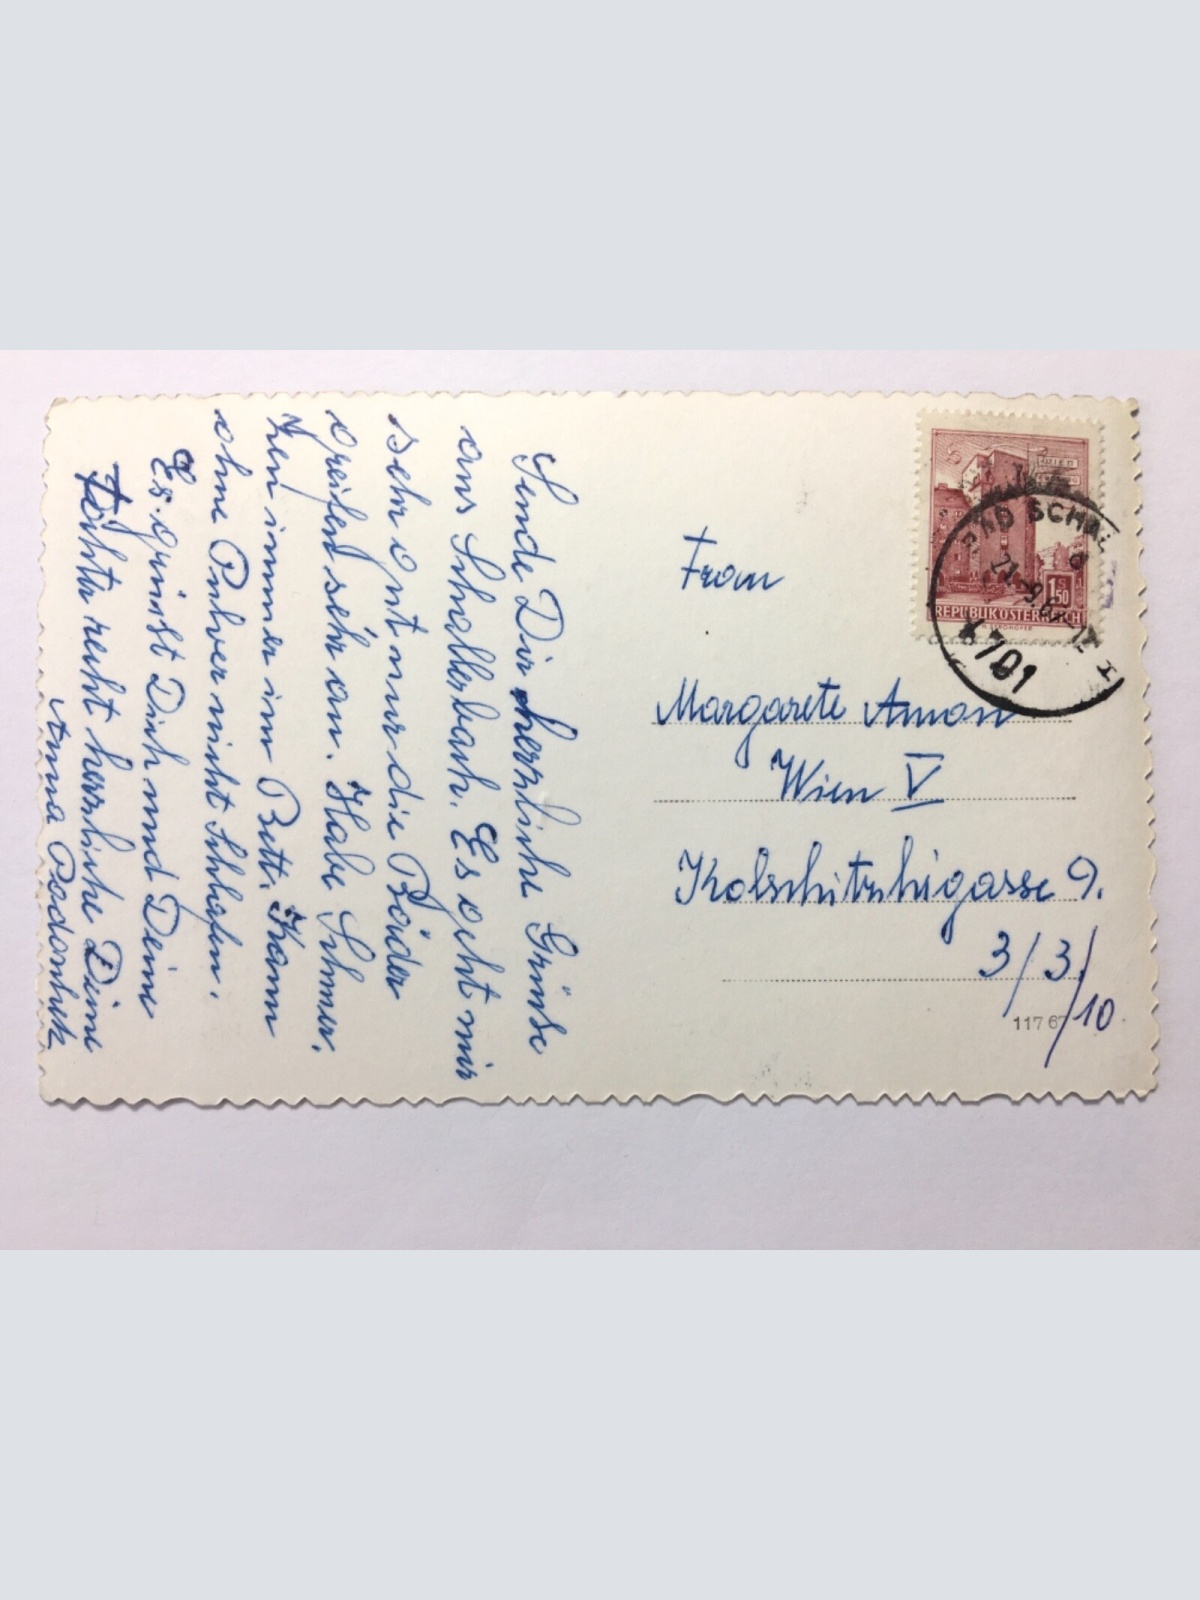 Sende Dir herzliche Grüsse
aus Schallerbach. Es geht mir
sehr gut nur die Bäder
greifen sehr an. Habe Schmer.
zen immer im Bett. Kann
ohne Pulver nicht schlafen.
Es grüsst Dich und Deine
Töchter recht herzliche Deine
Anna
Frau
Margarete Amon
Wien V
Kolschitzkigasse 9.
3/3/10
117 67
WIEN
1.50
REPUBLIK ÖSTERREICH
BAD SCHAL
4701